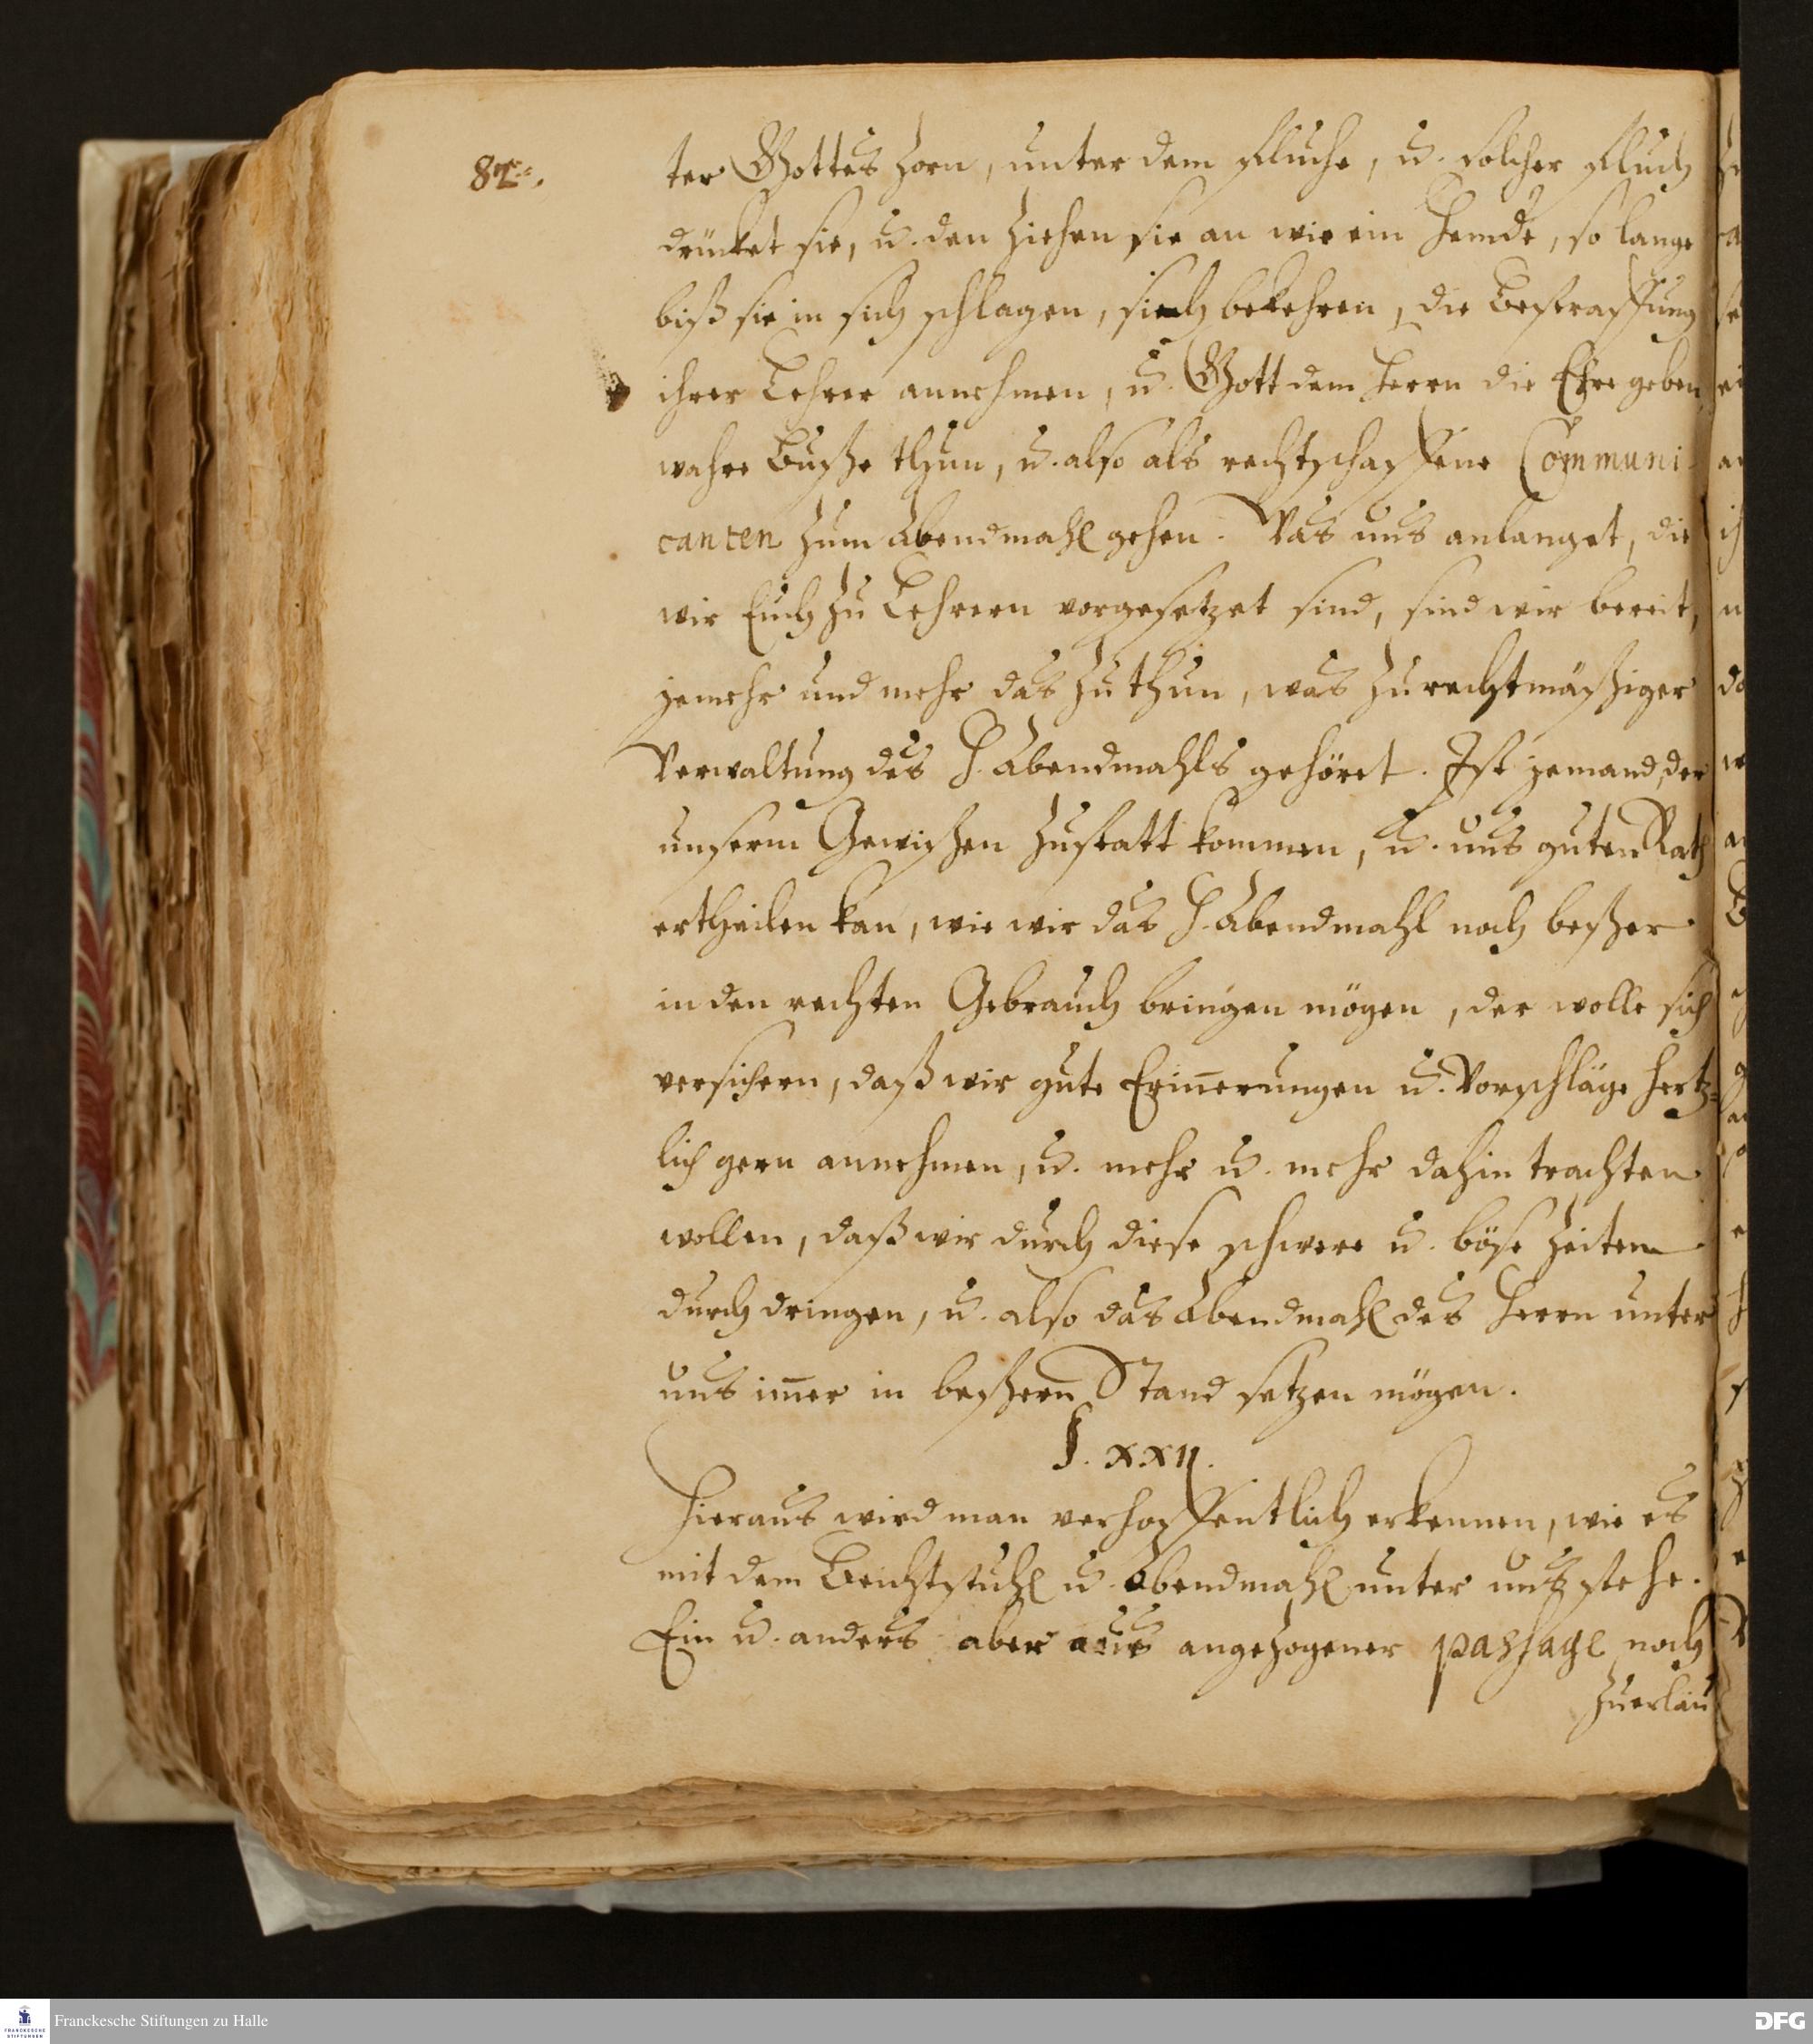 82.
ter Gottes Zorn, unter dem Fluche, u. solcher Fluch
drücket sie, u. den ziehen sie an wie ein Hemde, so lange
biß sie in sich schlagen, sich bekehren, die Bestraffung
ihrer Lehrer annehmen, u. Gott dem Herrn die Ehre geben,
wahre Buße thun, u. also als rechtschaffene Communi-
canten zum Abendmahl gehen. Was uns anlanget, die
wir Euch zu Lehrern vorgesetzet sind, sind wir bereit,
jemehr und mehr das zu thun, was zu rechtmäßiger
Verwaltung des H. Abendmahls gehöret. Ist jemand, der
unserm Gewißen zustatt kommen, u. uns guten Rath
ertheilen kan, wie wir das H. Abendmahl noch beßer
in den rechten Gebrauch bringen mögen, der wolle sich
versichern, daß wir gute Erinnerungen u. Vorschläge hertz-
lich gern annehmen, u. mehr u. mehr dahin trachten
wollen, daß wir durch diese schwere u. böse Zeiten
durch dringen, u. also das Abendmahl des Herrn unter
uns im̄er in beßern Stand setzen mögen.
§. XXII.
Hieraus wird man verhoffentlich erkennen, wie es
mit dem Beichtstuhl u. Abendmahl unter uns stehe.
Ein u. anders aber aus angezogener passage noch
zuerläu
Franckesche Stiftungen zu Halle
FRANCKESCHE
STIFTUNGEN
DFG